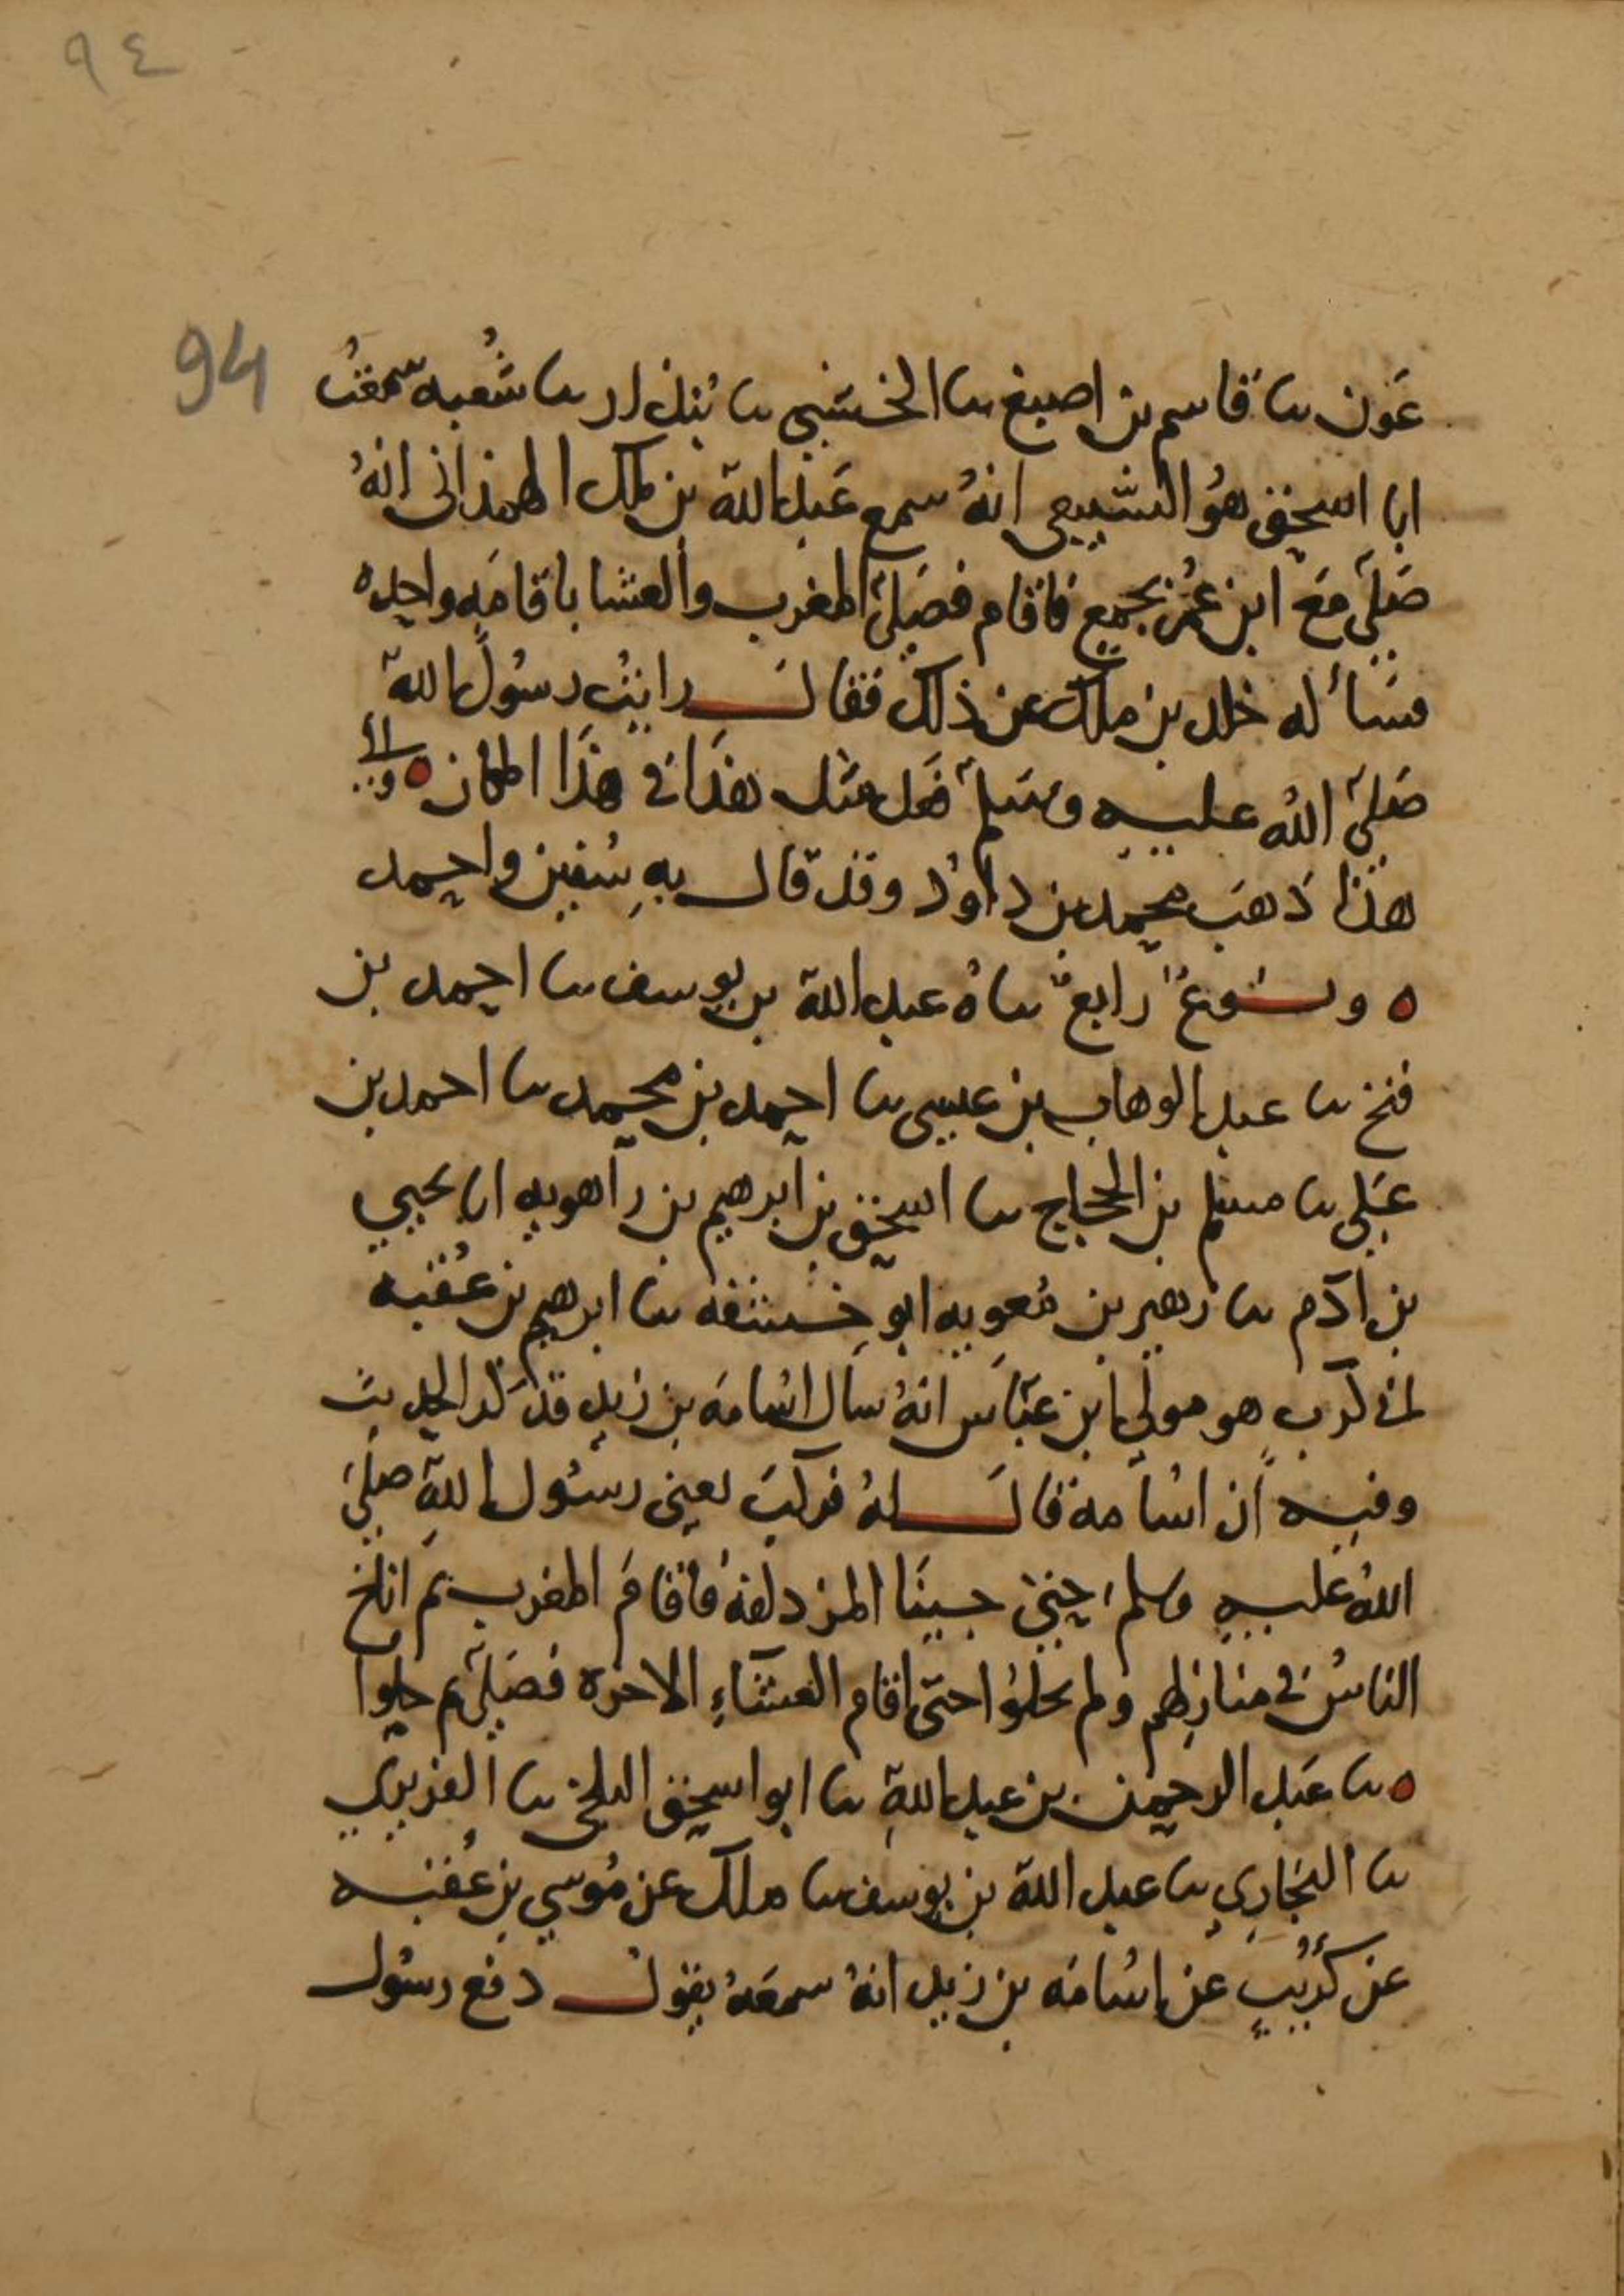 ٩٤
94
عَون ںا قاسم بن اصبغ ںا الخشني ںا بندار ںا شُعبه سمعتُ
ابا اسحق هُو السَّبيعي انهُ سمع عَبدالله بن ملك الهمذاني انهُ
صَلىَّ مَعَ ابن عُمر بجمع فاقام فصَلىَّ المغرب والعشا باقامَهٍ واحده
فسَأله خلد بن ملك عن ذلك فقال رايتُ رسُولَ الله
صَلىَّ اللهُ عليه وسَلمَّ فعَل مثل هذَا في هذَا المكان ٥ والي
هذا ذهبَ محمد بن داوُد وقد قال بهِ سُفين واحمد
٥ ونوعٌ رابعٌ ںاهُ عبدالله بن يوسف ںا احمد بن
فتح ںا عبدالوهاب بن عيسى ںا احمد بن محمد ںا احمد بن
عَلي ںا مسلم بن الحجاج ںا اسحق بن ابرهيم بن راهويه اںا يحيي
بن آدم ںا زهير بن مُعويه ابو خيثمه ںا ابرهيم بن عُقبه
اني كريب هو مولي ابن عبَّاس انهُ سَال اسُامَه بن زيدٍ فذكر الحديث
وفيه ان اسُامة قالَ لهُ فركبَ يعني رسُول اللهِ صلىَّ
اللهُ عليهِ وسلم حينَ جينَا المزدلفهَ فاقامَ المغرب ثم اناخ
الناسُ في منازلهم ولم يحلوُا حتىَّ اقام العشَاءِ الاخره فصَلىَّ ثم حلوا
٥ ںا عَبد الرحمن بن عبدالله ںا ابو اسحق البلخي ںا الفربري
ںا البخاري ںا عبد الله بن يوسف ںا ملك عن مُوسي بن عُقبه
عن كُرَيبٍ عن اسُامَه بن زيد انهُ سمعَهُ يقول دفع رسُول